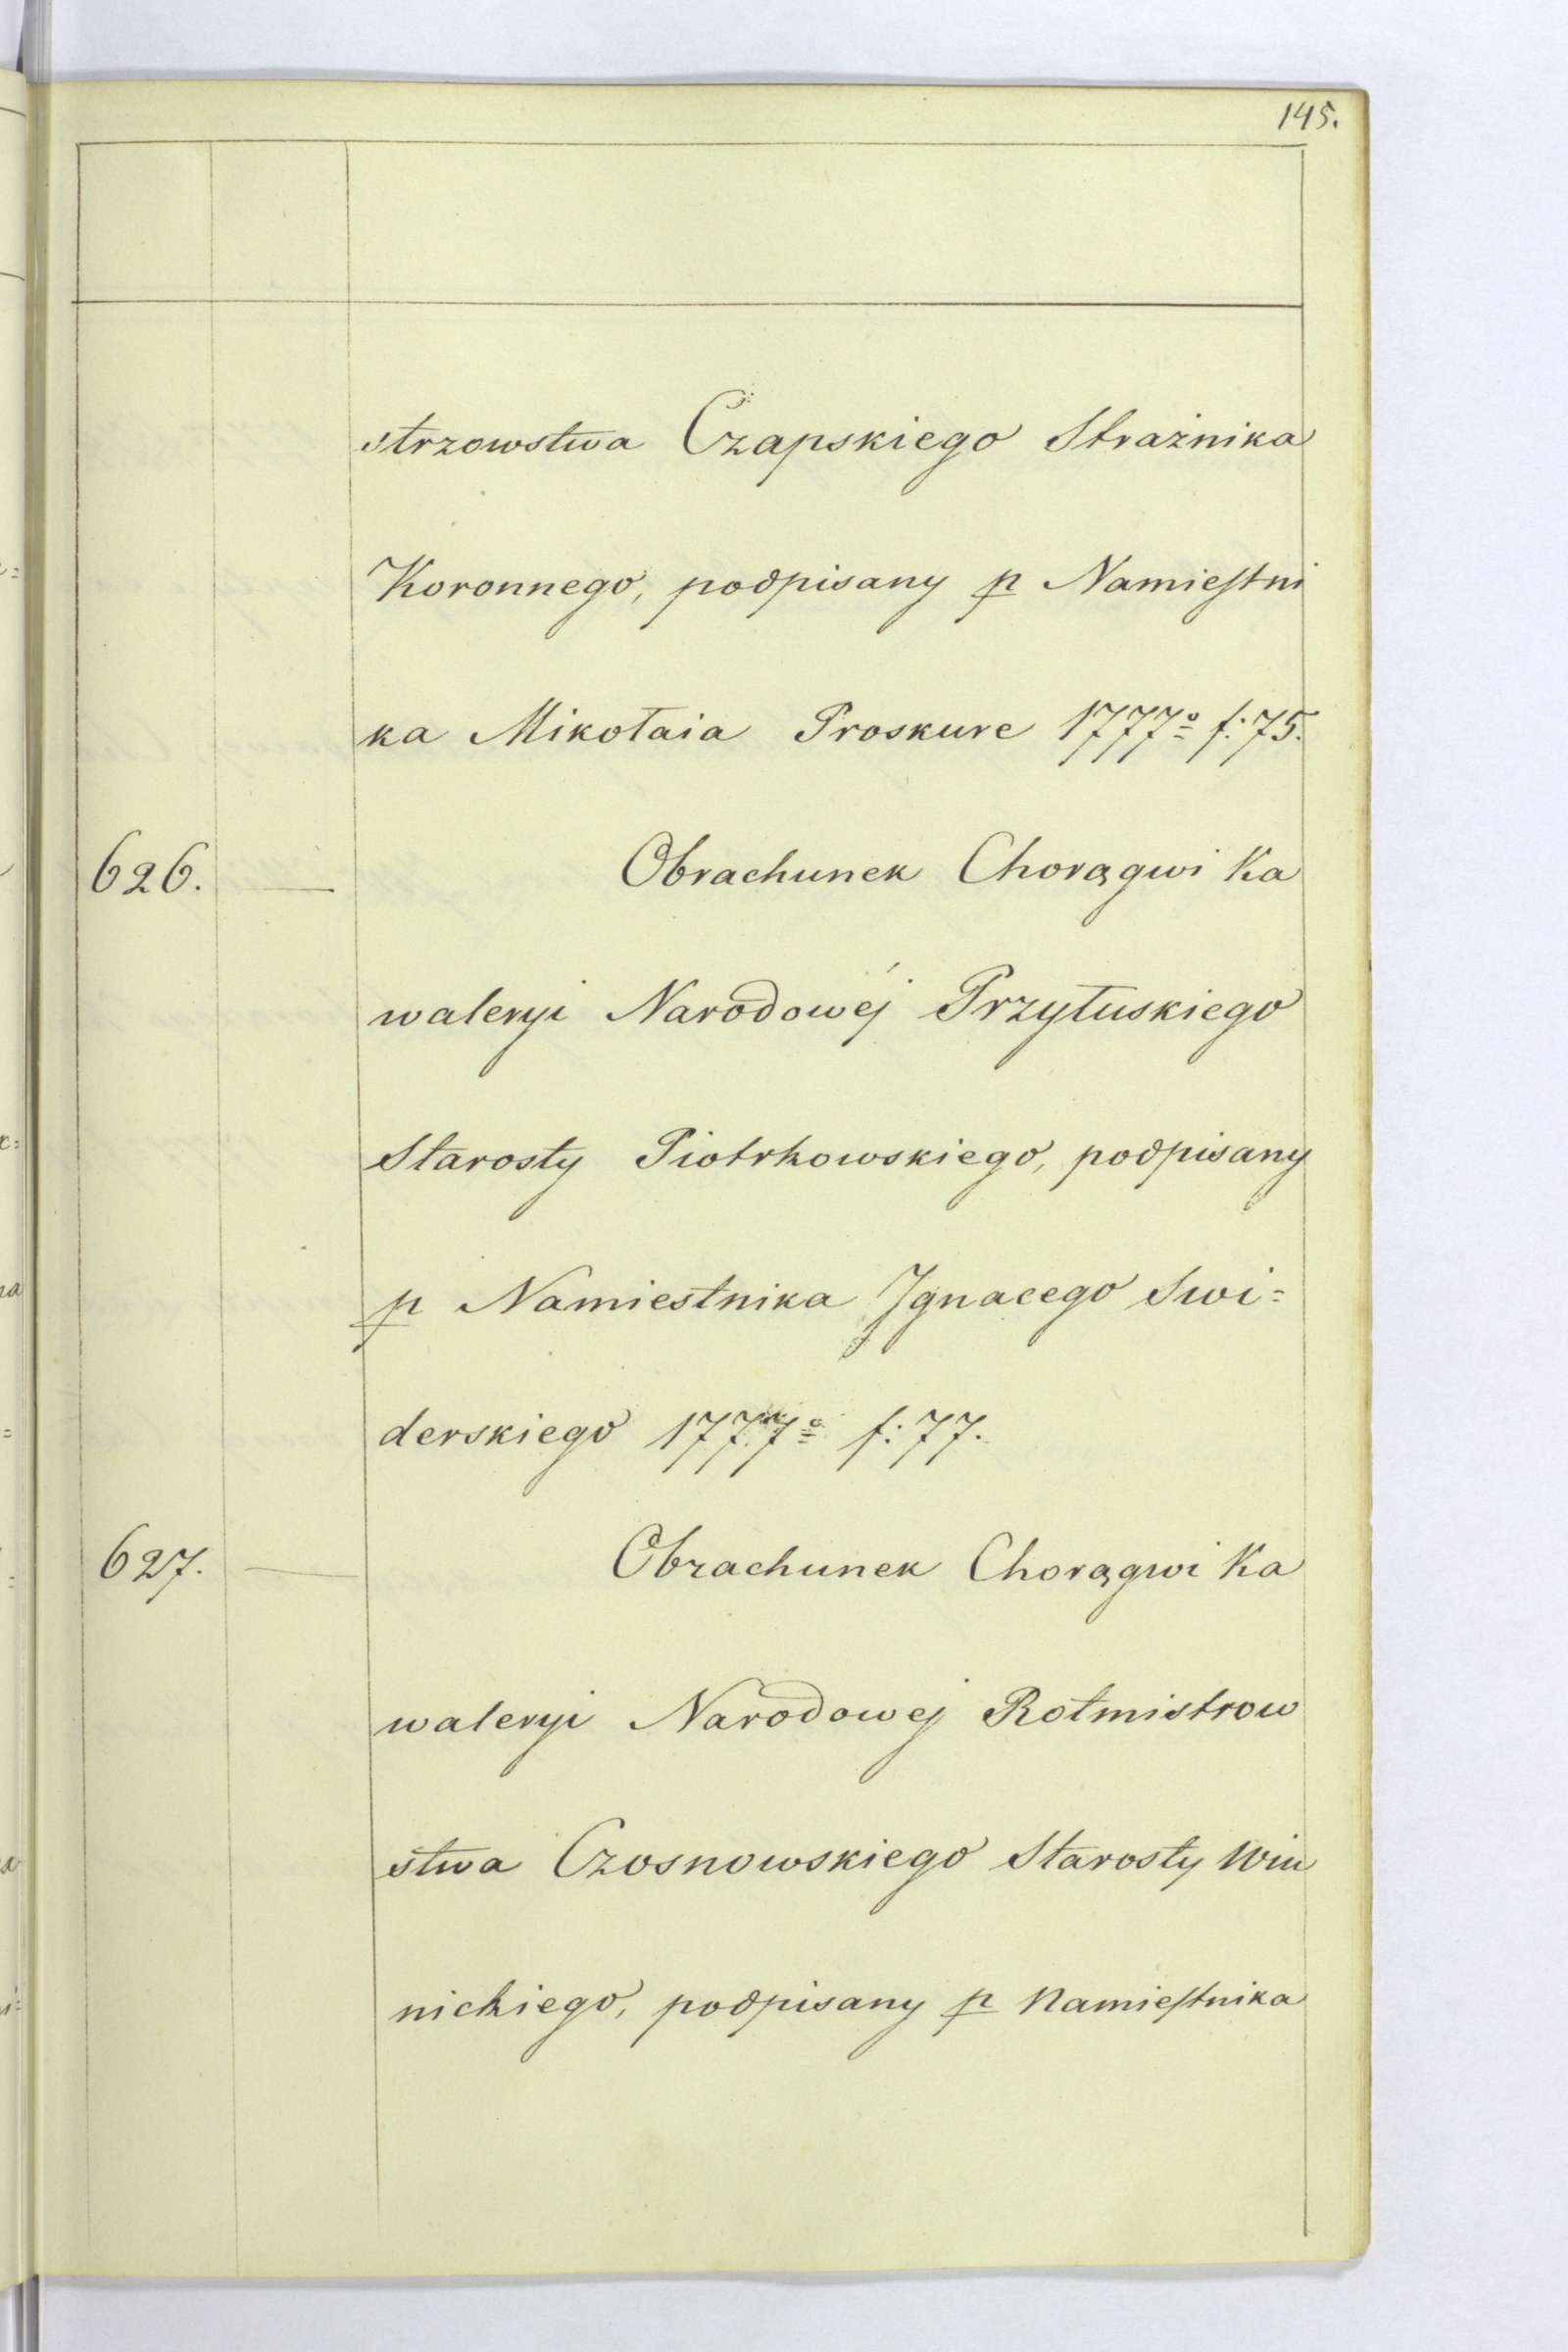 145.
strzowstwa Czapskiego Strażnika
Koronnego, podpisany p Namiestni
ka Mikołaia Proskure 1777º f: 75.
626. — Obrachunek Chorągwi Ka
waleryi Narodowéj Przyłuskiego
Starosty Piotrkowskiego, podpisany
p Namiestnika Jgnacego Swi=
derskiego 1777º f: 77.
627. — Obrachunek Chorągwi Ka
waleryi Narodowej Rotmistrow
stwa Czosnowskiego Starosty Win
nickiego, podpisany p Namiestnika